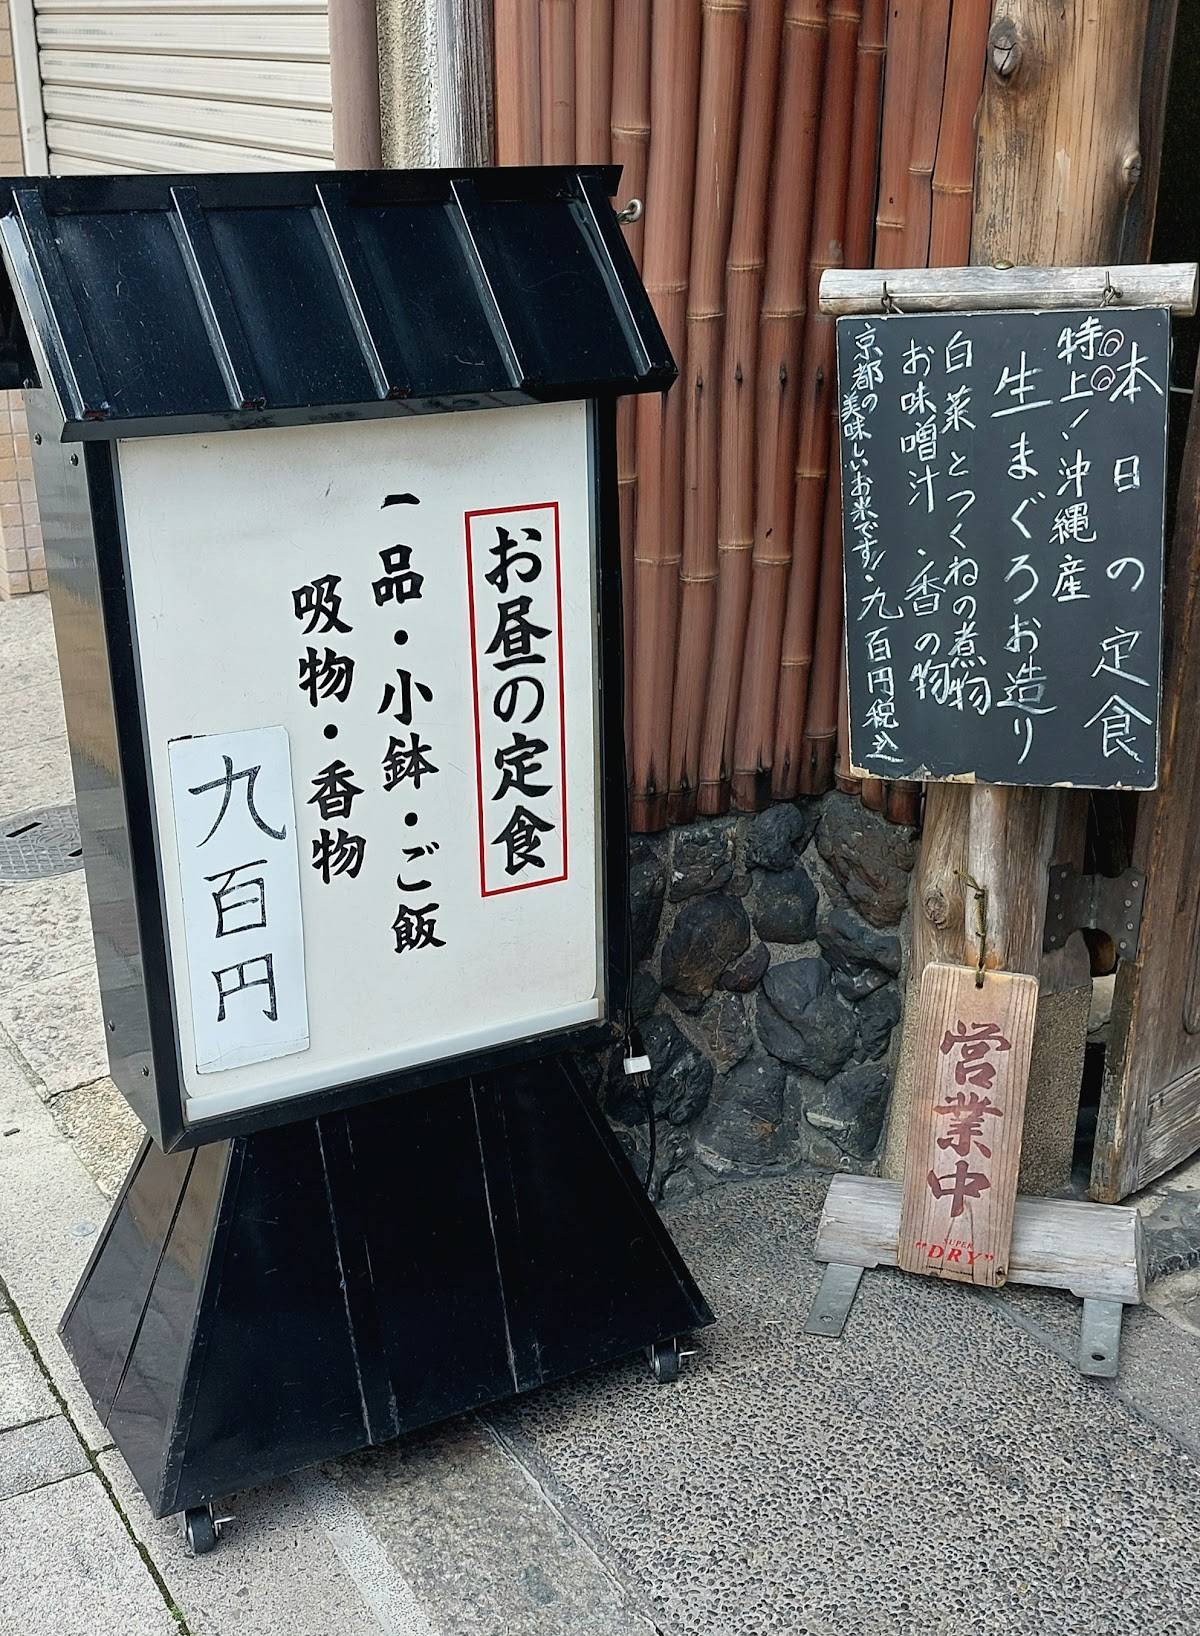 お昼の定食
一品・小鉢・ご飯
吸物・香物
九百円
本日の定食
特上!沖縄産
生まぐろお造り
白菜とつくねの煮物
お味噌汁・香の物
京都の美味しいお米です!・九百円税込
営業中
SUPER
"DRY"